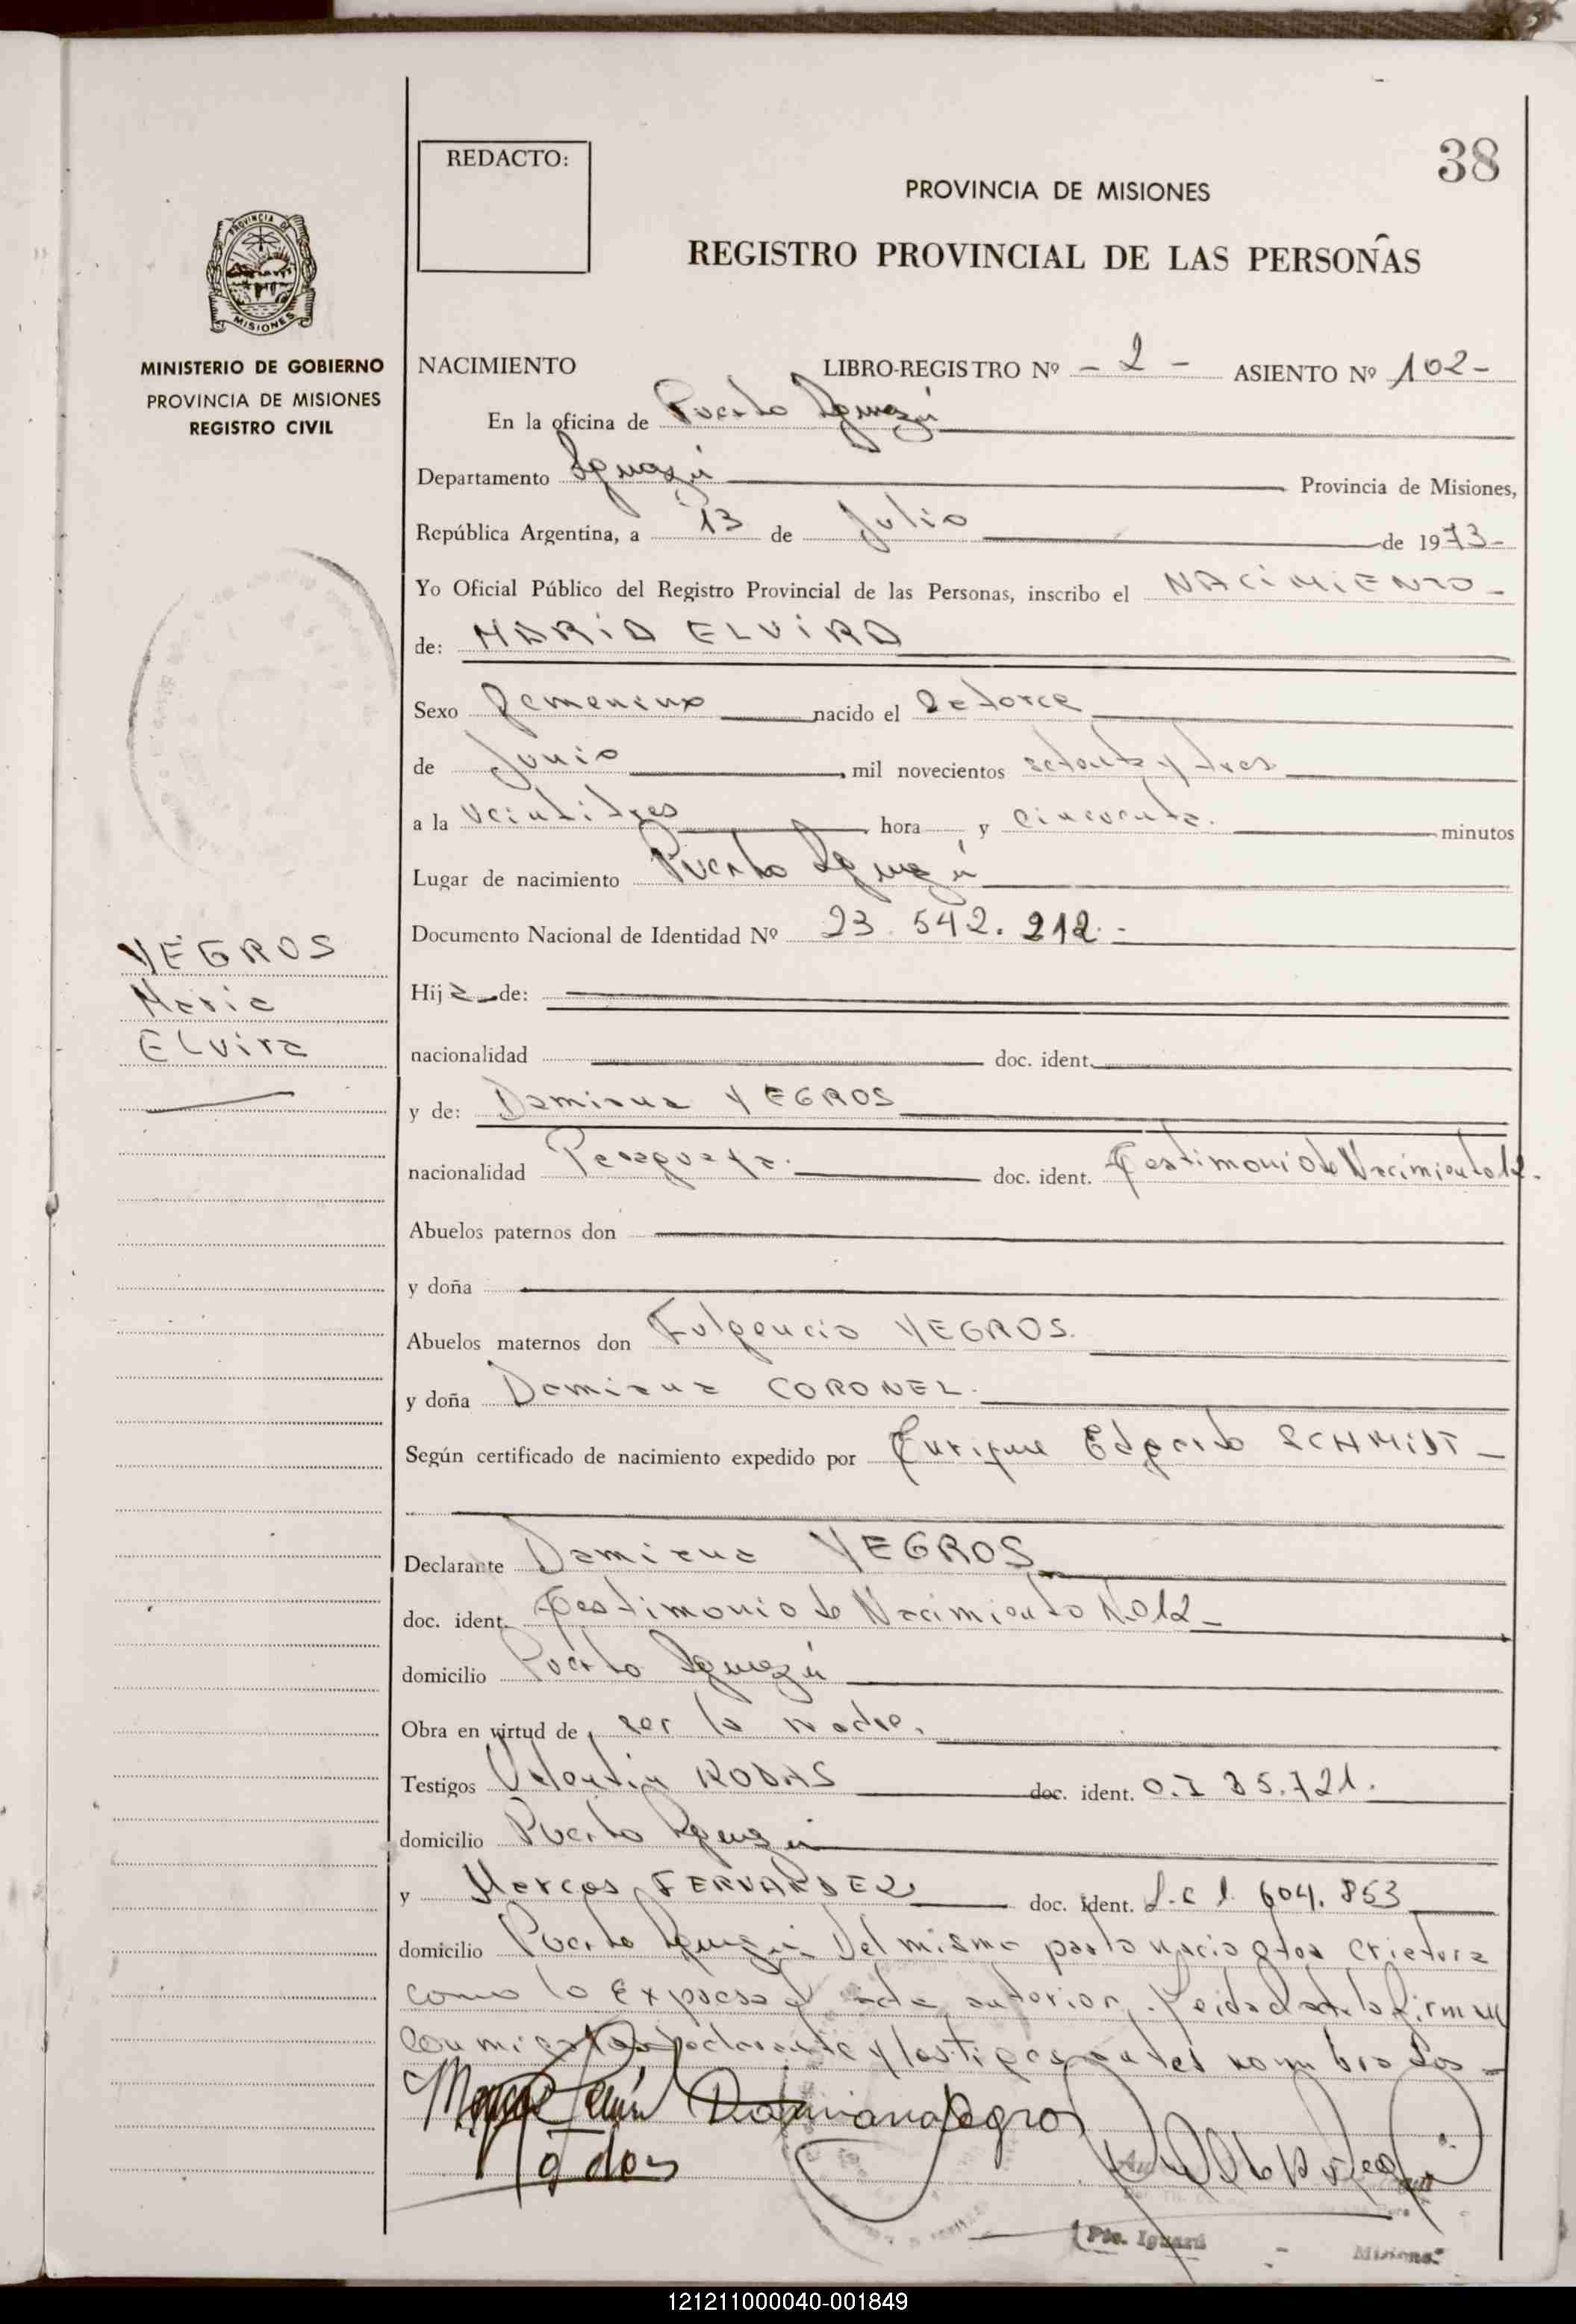 38
REDACTO:
PROVINCIA DE MISIONES
REGISTRO PROVINCIAL DE LAS PERSONAS
PROVINCIA DE
MISIONES
MINISTERIO DE GOBIERNO
PROVINCIA DE MISIONES
REGISTRO CIVIL
NACIMIENTO LIBRO-REGISTRO Nº - 2 - ASIENTO Nº 102-
En la oficina de Puerto Iguazú
Departamento Iguazú Provincia de Misiones,
República Argentina, a 13 de Julio de 1973-
Yo Oficial Público del Registro Provincial de las Personas, inscribo el NACIMIENTO-
de: MARIA ELVIRA
Sexo Femenino nacido el catorce
de Junio mil novecientos setenta y tres
a la veintitres hora y cincuenta. minutos
Lugar de nacimiento Puerto Iguazú
Documento Nacional de Identidad Nº 23.542.212.-
YEGROS
Maria
Elvira
Hija de:
nacionalidad doc. ident.
y de: Damiana YEGROS
nacionalidad Paraguaya. doc. ident. Testimonio de Nacimiento 12.
Abuelos paternos don
y doña
Abuelos maternos don Fulgencio YEGROS.
y doña Damiana CORONEL.
Según certificado de nacimiento expedido por Enrique Edgardo SCHMIDT-
Declarante Damiana YEGROS
doc. ident. Testimonio de Nacimiento Nº 12-
domicilio Puerto Iguazú
Obra en virtud de ser la madre.
Testigos Valentin RODAS doc. ident. 85.721.
domicilio Puerto Iguazú
y Marcos FERNANDEZ doc. ident. 604.853
domicilio Puerto Iguazú Del mismo parto nacio otra criatura
como lo expresa el acta anterior. Leida el acta la firman
conmigo la declarante y los testigos antes nombrados-
Damiana Yegros
Rodas
Pto. Iguazú Misiones
121211000040-001849